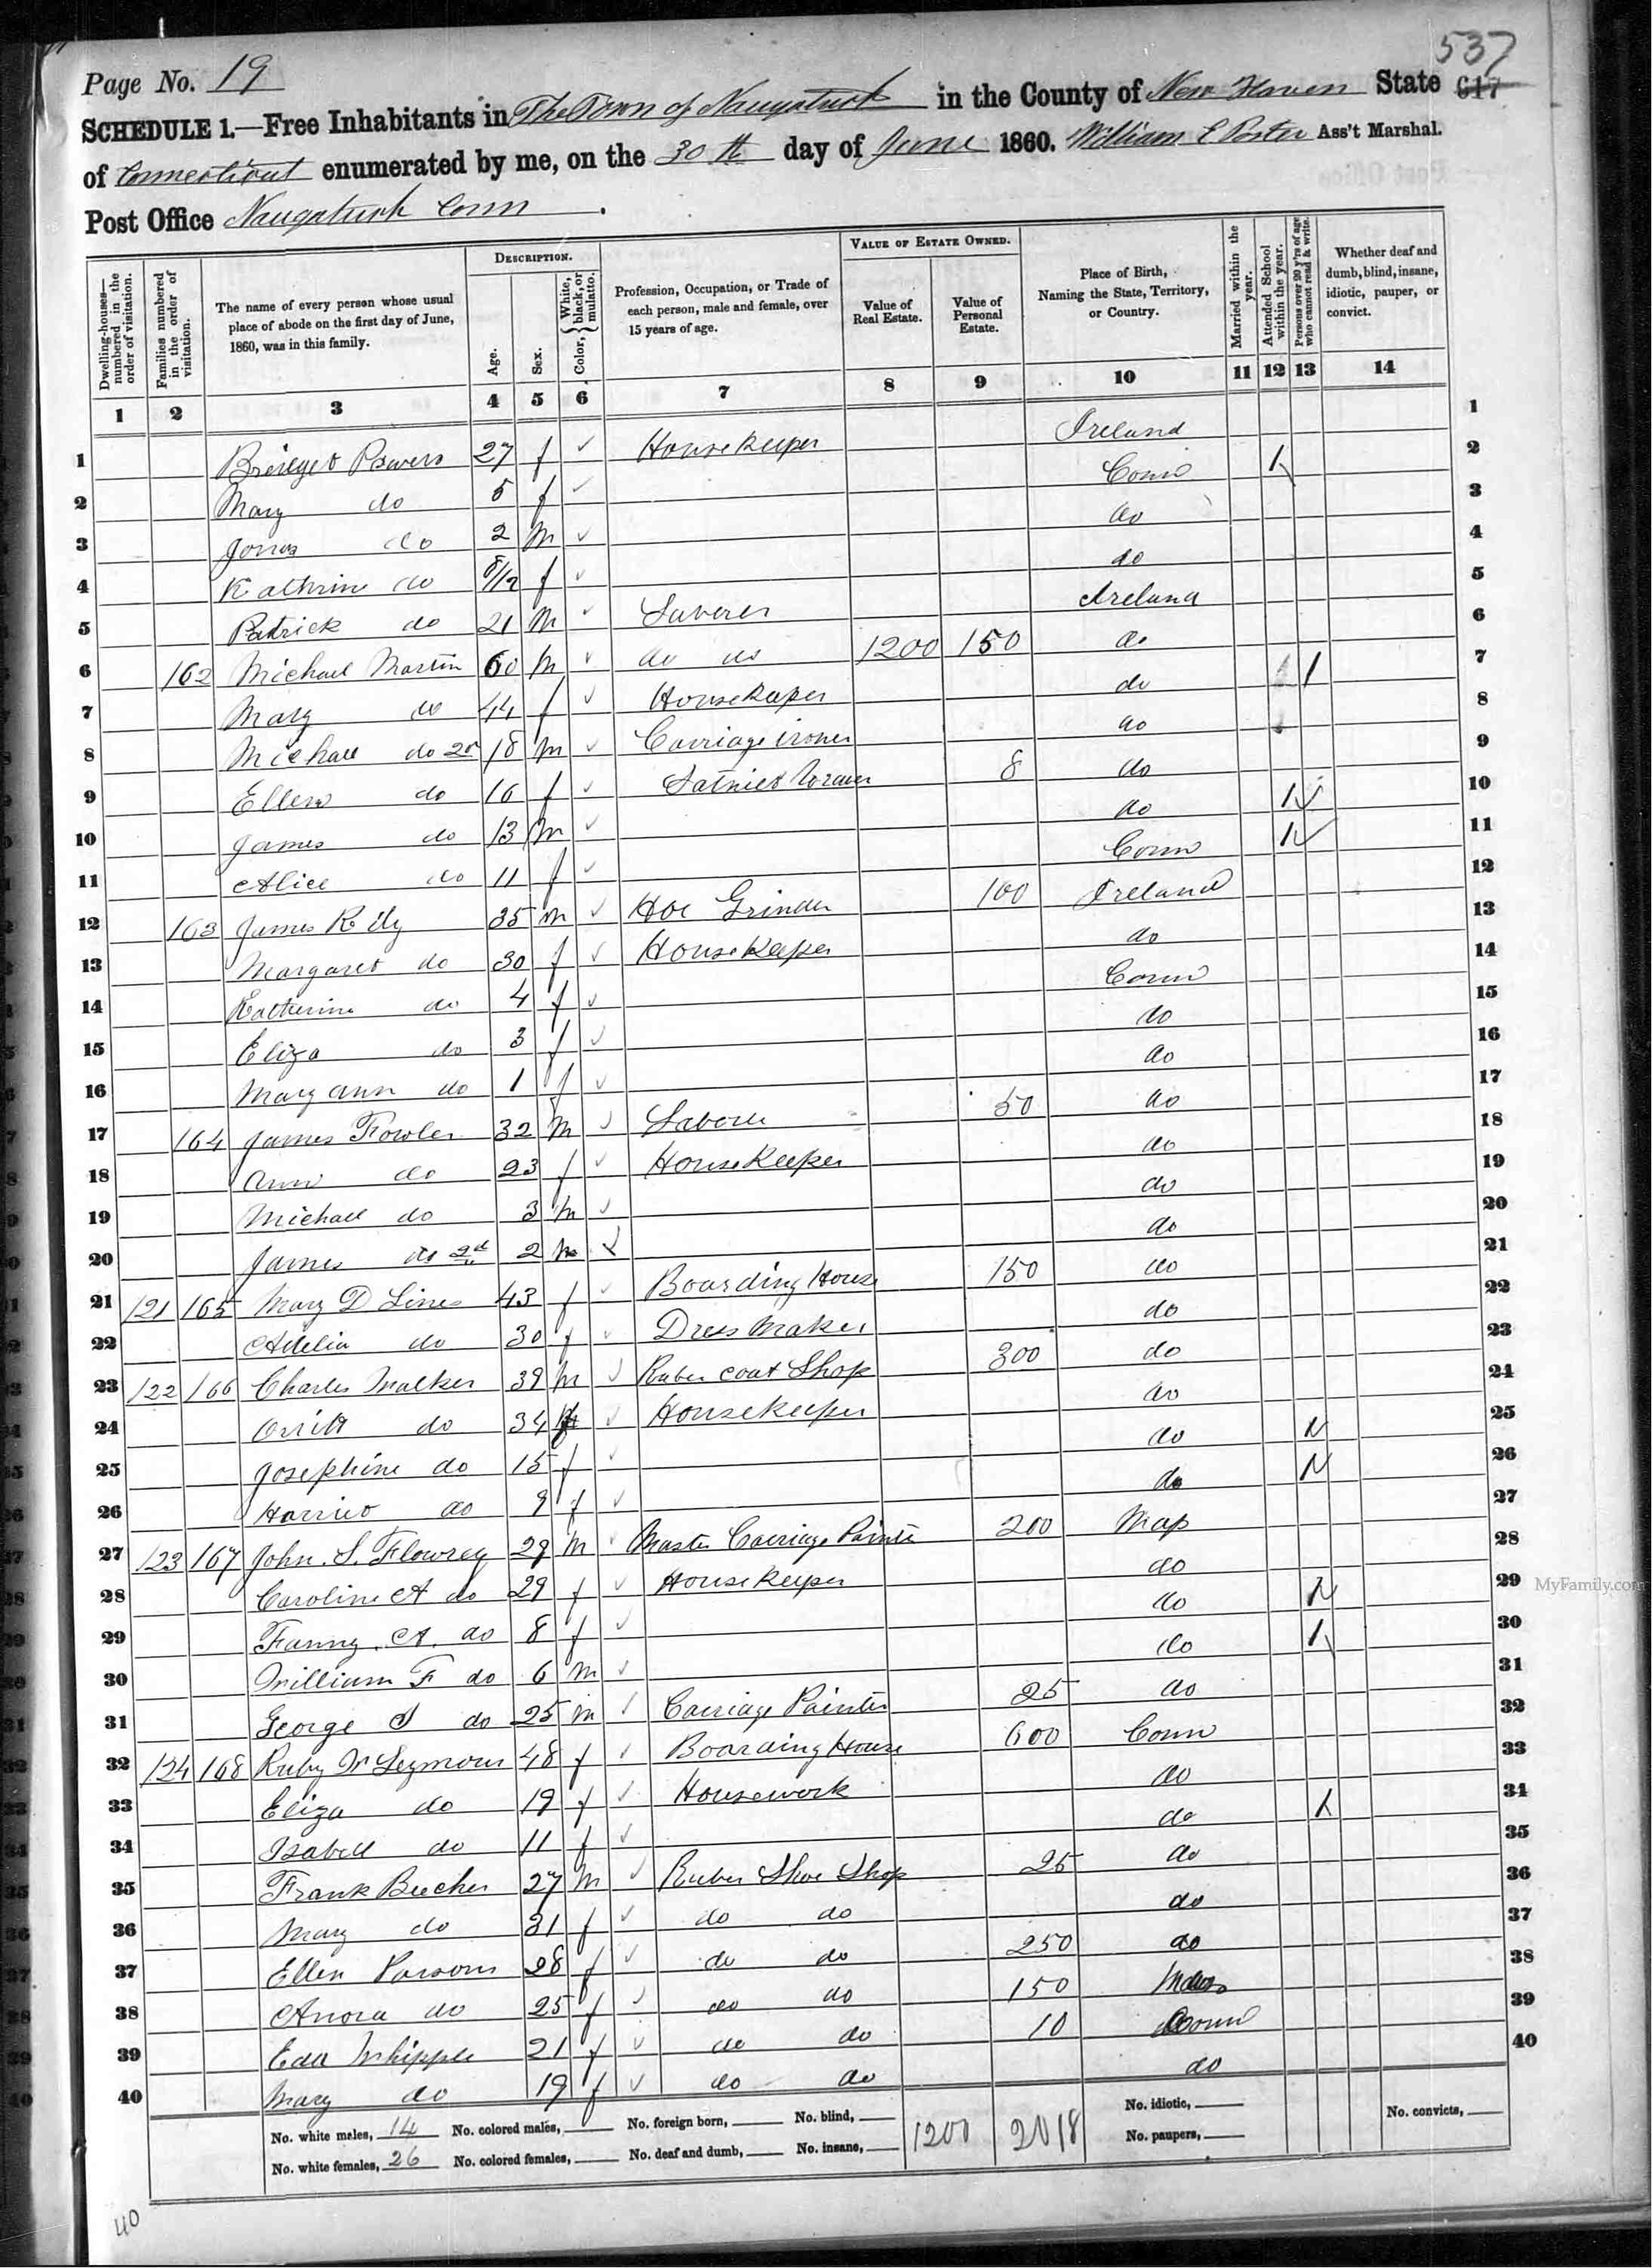 537
Page No. 19
617
SCHEDULE 1.—Free Inhabitants in The Town of Naugatuck in the County of New Haven State
of Connecticut enumerated by me, on the 30th day of June 1860. William C Porter Ass't Marshal.
Post Office Naugatuck Conn.
Dwelling-houses—numbered in the order of visitation. Families numbered in the order of visitation. The name of every person whose usual place of abode on the first day of June, 1860, was in this family. DESCRIPTION. Age. Sex. Color, White, black, or mulatto. Profession, Occupation, or Trade of each person, male and female, over 15 years of age. VALUE OF ESTATE OWNED. Value of Real Estate. Value of Personal Estate. Place of Birth, Naming the State, Territory, or Country. Married within the year. Attended School within the year. Persons over 20 y'rs of age who cannot read & write. Whether deaf and dumb, blind, insane, idiotic, pauper, or convict.
1 2 3 4 5 6 7 8 9 10 11 12 13 14
1 Bridget Powers 27 f ✓ Housekeeper Ireland 1
2 Mary do 5 f ✓ Conn 1 2
3 do 2 m ✓ do 3
4 Kathrin do 8/12 f ✓ do 4
5 Patrick do 21 m ✓ Laborer Ireland 5
6 162 Michael Martin 60 m ✓ do do 1200 150 do 6
7 Mary do 44 f ✓ Housekeeper do 1 7
8 Michall do 2d 18 m ✓ Carriage ironer do 8
9 Ellen do 16 f ✓ 8 do 9
10 James do 13 m ✓ do 1 10
11 Alice do 11 f ✓ Conn 1 11
12 163 James Reily 35 m ✓ Hoe Grinder 100 Ireland 12
13 Margaret do 30 f ✓ Housekeeper do 13
14 Katherine do 4 f ✓ Conn 14
15 Eliza do 3 f ✓ do 15
16 Mary ann do 1 f ✓ do 16
17 164 James Fowler 32 m ✓ Laborer 50 do 17
18 Ann do 23 f ✓ Housekeeper do 18
19 Michael do 3 m ✓ do 19
20 James do 2d 2 m ✓ do 20
21 121 165 Mary D Lines 43 f ✓ Boarding House 150 do 21
22 Adelia do 30 f ✓ Dress Maker do 22
23 122 166 Charles Walker 39 m ✓ Ruber coat Shop 300 do 23
24 do 34 f ✓ Housekeeper do 24
25 Josephine do 15 f ✓ do 1 25
26 Harriet do 9 f ✓ do 1 26
27 123 167 John. S. Flowrey 29 m ✓ Master Carriage Painter 200 Mas 27
28 Caroline A do 29 f ✓ Housekeeper do 28
29 Fanny. A. do 8 f ✓ do 1 29
30 William F do 6 m ✓ do 1 30
31 George S do 25 m ✓ Carriage Painter 25 do 31
32 124 168 Ruby W Seymour 48 f ✓ Boarding House 600 Conn 32
33 Eliza do 19 f ✓ Housework do 33
34 Isabell do 11 f ✓ do 1 34
35 Frank Beecher 27 m ✓ Ruber Shoe Shop 25 do 35
36 Mary do 31 f ✓ do do do 36
37 Ellen Parsons 28 f ✓ do do 250 do 37
38 Anora do 25 f ✓ do do 150 Mass 38
39 Eda Whipple 21 f ✓ do do 10 Conn 39
40 Mary do 19 f ✓ do do do 40
No. white males, 14 No. colored males, No. foreign born, No. blind, No. idiotic, No. convicts,
No. white females, 26 No. colored females, No. deaf and dumb, No. insane, 1200 2018 No. paupers,
40
MyFamily.com